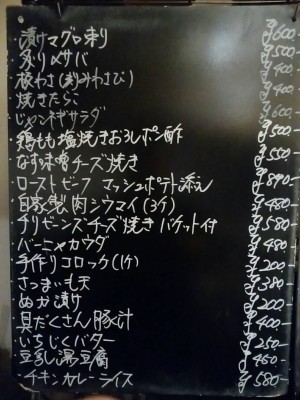 ・漬けマグロ刺 ¥600-
・炙り〆サバ ¥500-
・板わさ(刻みわさび) ¥400-
・焼きたらこ ¥400-
・じゃこネギサラダ ¥600-
・鶏もも塩焼きおろしポン酢 ¥500-
・なす味噌チーズ焼き ¥550-
・ローストビーフ マッシュポテト添え ¥890-
・自家製肉シウマイ(3ケ) ¥480-
・チリビーンズチーズ焼き バケット付 ¥580-
・バーニャカウダ ¥480-
・手作りコロッケ(1ケ) ¥200-
・さつまいも天 ¥380-
・ぬか漬け ¥200-
・具だくさん豚汁 ¥400-
・いちじくバター ¥250-
・豆乳湯豆腐 ¥460-
・チキンカレーライス ¥580-